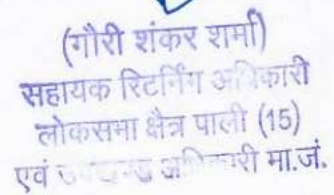 (गौरी शंकर शर्मा)
सहायक रिटर्निंग अधिकारी
लोकसभा क्षैत्र पाली (15)
एवं उपखण्ड अधिकारी मा.जं.